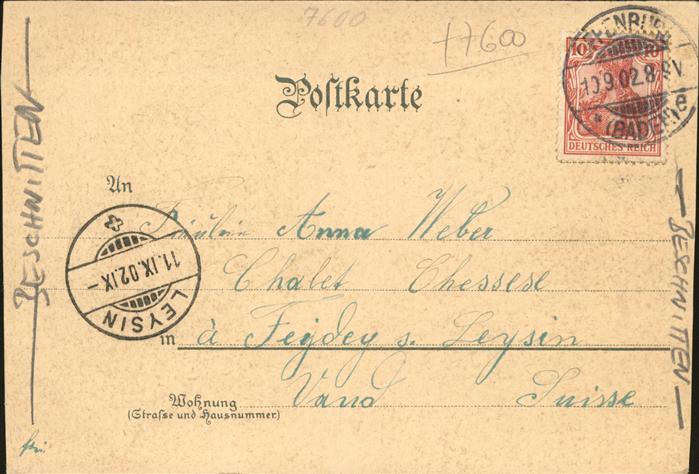 7600
77600
10 10
10.9.02.8-9V.
(BADEN) e
DEUTSCHES REICH
Postkarte
BESCHNITTEN
BESCHNITTEN
An
Fräulein Anna Weber
Chalet Chessese
11.IX.02.IX-
LEYSIN
in à Feydey s. Leysin
Wohnung
(Straße und Hausnummer)
Vaud Suisse